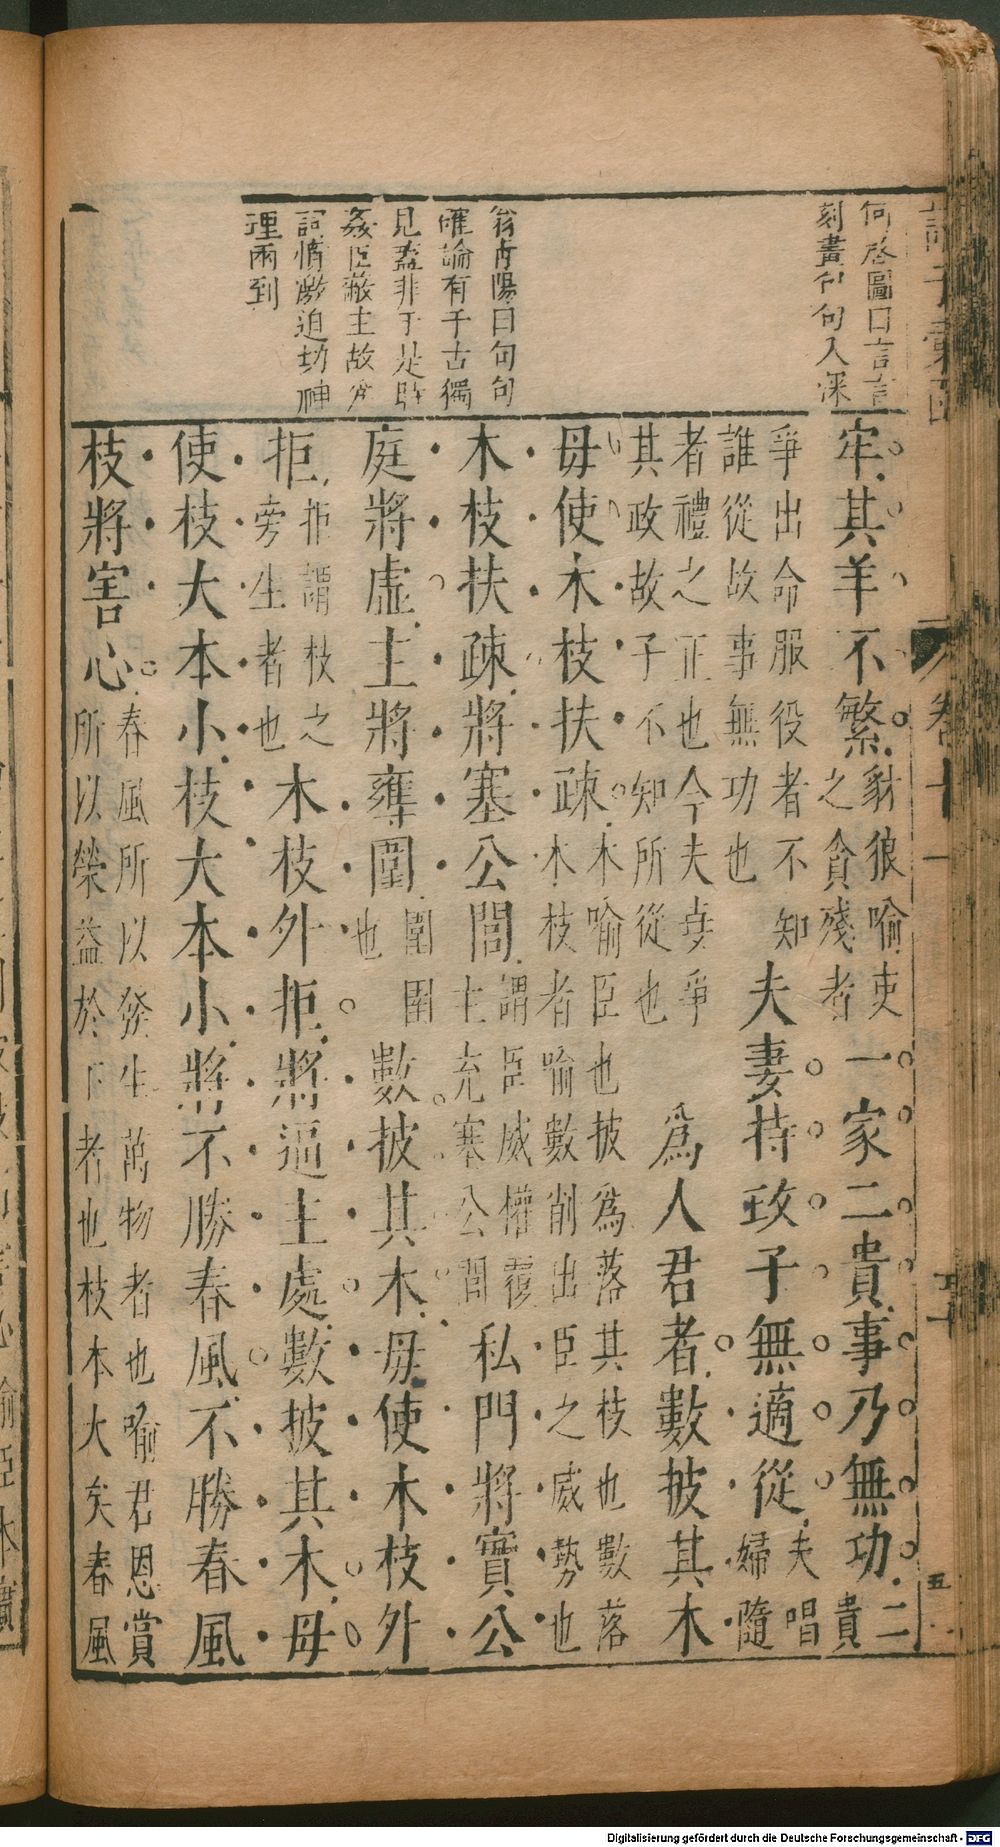 諸子彙函
卷十一
五十
五
何啓圖曰言言
刻畫句句入深
翁青陽曰句句
確論有千古獨
見蓋非于是時
姦臣蔽主故
詞情激迫切神
理兩到
牢其羊不繁豺狼喻吏之貪殘者一家二貴事乃無功二貴
爭出命服役者不知誰從故事無功也夫妻持政子無適從夫唱婦隨
者禮之正也今夫妻爭其政故子不知所從也爲人君者數披其木
毋使木枝扶疎木喻臣也披爲落其枝也數落木枝者喻數削出臣之威勢也
木枝扶疎將塞公閭謂臣威權覆主充塞公閭私門將實公
庭將虛主將壅圍圍圉也數披其木毋使木枝外
拒拒謂枝之旁生者也木枝外拒將逼主處數披其木毋
使枝大本小枝大本小將不勝春風不勝春風
枝將害心春風所以發生萬物者也喻君恩賞所以榮益於下者也枝本大矣春風
Digitalisierung gefördert durch die Deutsche Forschungsgemeinschaft - DFG